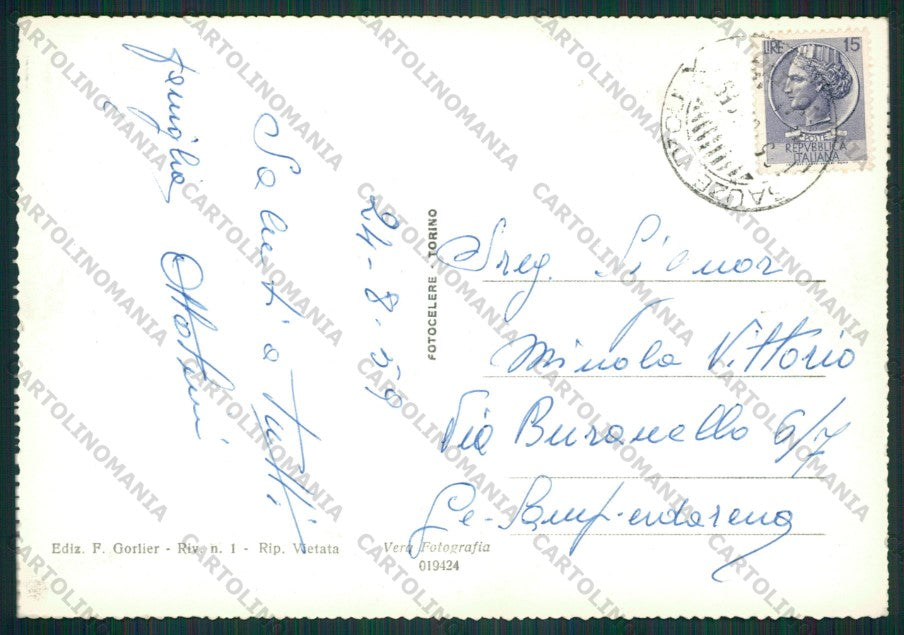 LIRE 15
POSTE
REPVBBLICA
ITALIANA
24-8-59
Saluti a Tutti
famiglia
FOTOCELERE - TORINO
Sreg. Signor
Minola Vittorio
Via Buranello 6/7
Ge-Sampierdarena
Ediz. F. Gorlier - Riv. n. 1 - Rip. Vietata
Vera Fotografia
019424
CARTOLINOMANIA